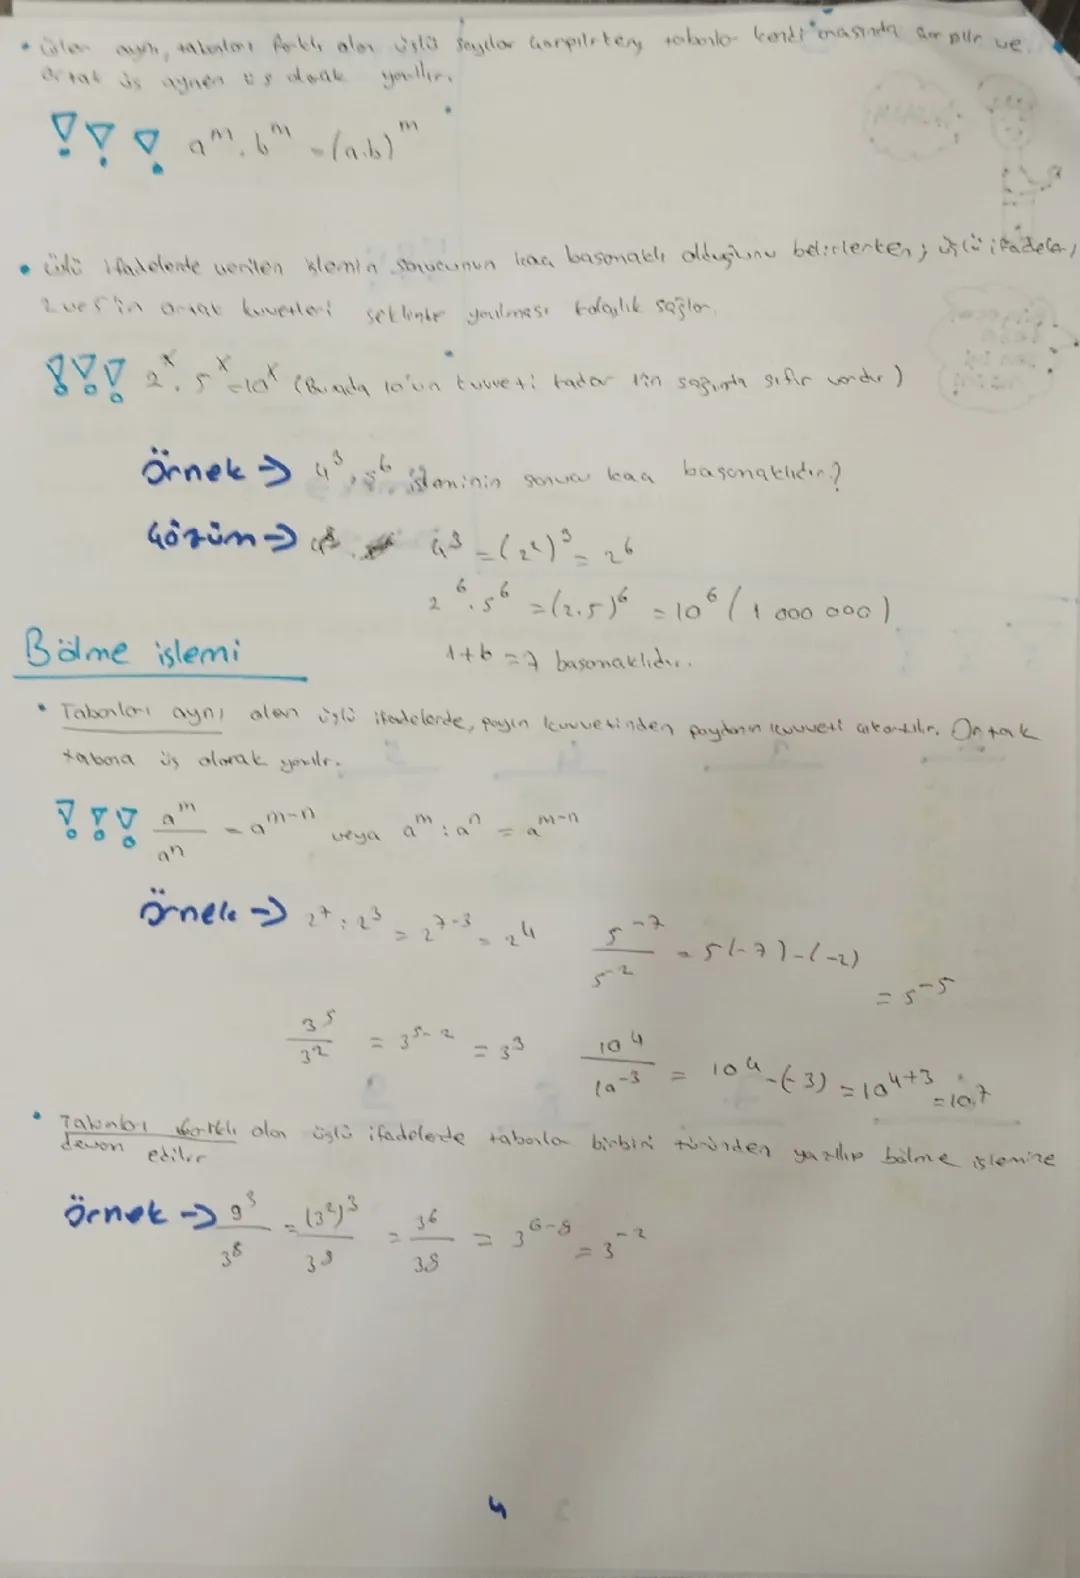 • Üsleri aynı, tabanları farklı olan üslü sayılar çarpılırken, tabanlar kendi arasında çarpılır ve
ortak üs aynen üs olarak yazılır.
a^m . b^m = (a.b)^m
• üslü ifadelerde verilen işlemin sonucunun kaç basamaklı olduğunu belirlerken; üslü ifadeler,
2 ve 5'in ortak kuvvetleri şeklinde yazılması kolaylık sağlar.
2^x . 5^x = 10^x (Burada 10'un kuvveti kadar 1'in sağında sıfır vardır)
Örnek → 4^3 . 5^6 işleminin sonucu kaç basamaklıdır?
Çözüm → 4^3 = (2^2)^3 = 2^6
2^6 . 5^6 = (2.5)^6 = 10^6 (1 000 000)
1+6 = 7 basamaklıdır.
Bölme işlemi
• Tabanları aynı olan üslü ifadelerde, payın kuvvetinden paydanın kuvveti çıkartılır. Ortak
tabana üs olarak yazılır.
a^m / a^n = a^m-n veya a^m : a^n = a^m-n
Örnek → 2^7 : 2^3 = 2^7-3 = 2^4   5^-7 / 5^-2 = 5(-7)-(-2) = 5^-5
3^5 / 3^2 = 3^5-2 = 3^3   10^4 / 10^-3 = 10^4-(-3) = 10^4+3 = 10^7
• Tabanları farklı olan üslü ifadelerde tabanlar birbiri türünden yazılıp bölme işlemine
devam edilir
Örnek → 9^3 / 3^8 = (3^2)^3 / 3^8 = 3^6 / 3^8 = 3^6-8 = 3^-2
4